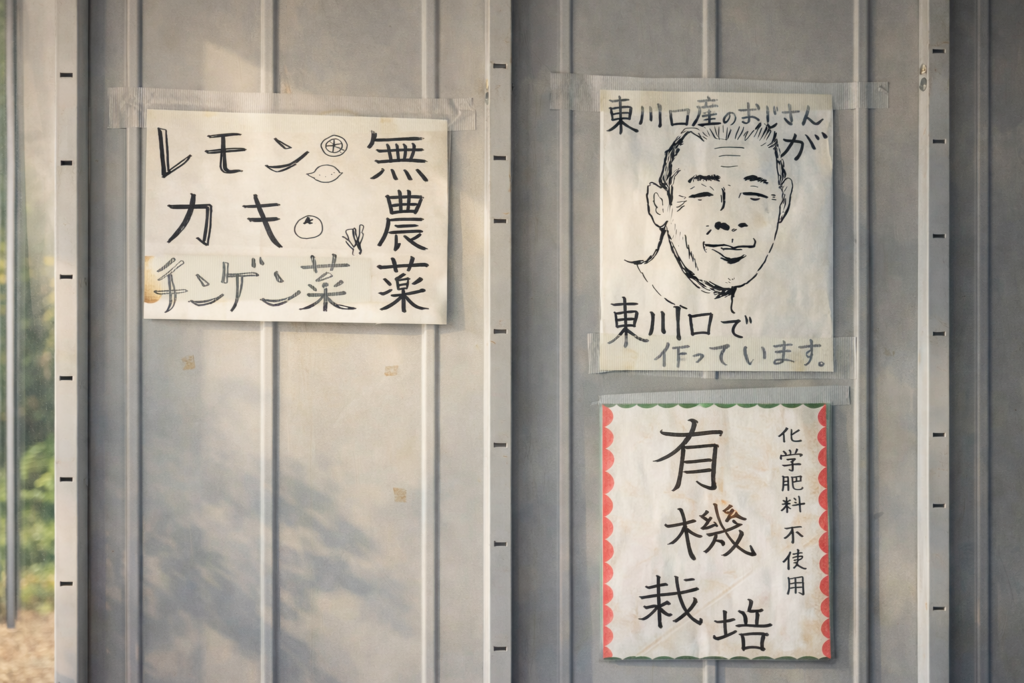 無農薬
レモン
カキ
チンゲン菜
東川口産のおじさん
が
東川口で
作っています。
化学肥料不使用
有機
栽培